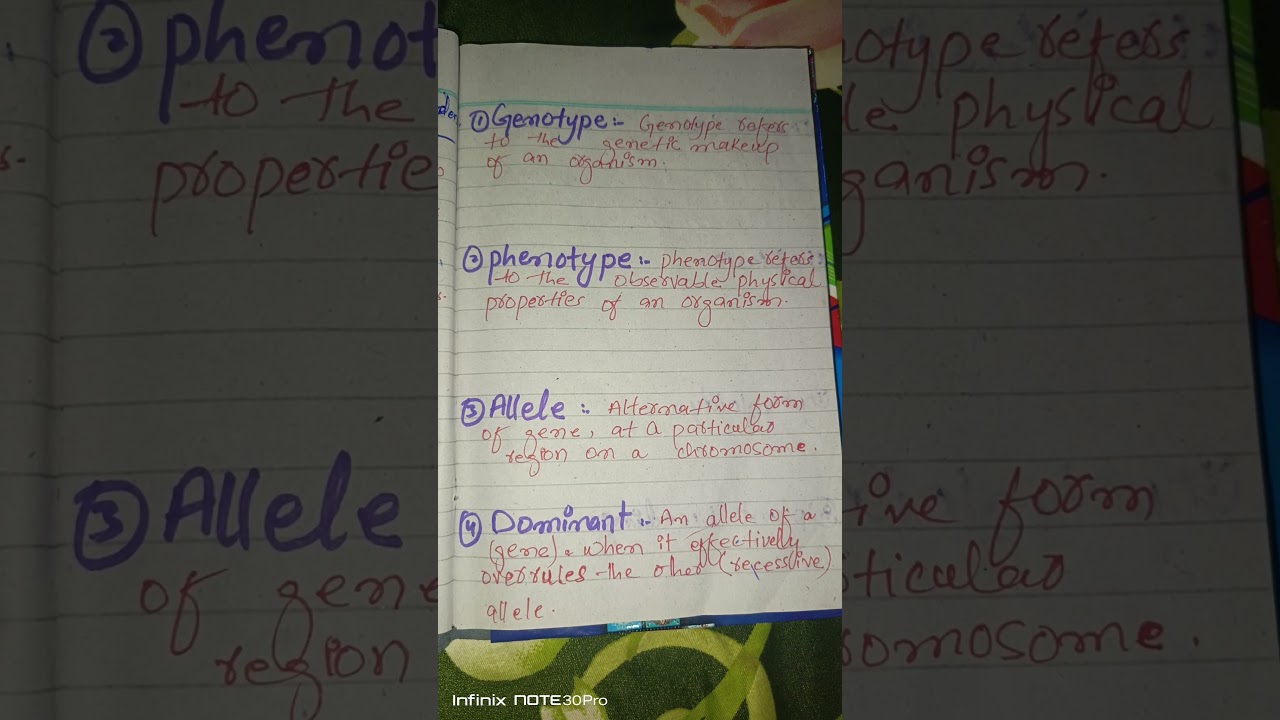 ① Genotype:- Genotype refers
to the genetic makeup
of an organism.
② phenotype:- phenotype refers
to the observable physical
properties of an organism.
③ Allele :- Alternative form
of gene, at a particular
region on a chromosome.
④ Dominant :- An allele of a
(gene). when it effectively
overrules the other (recessive)
allele.
Infinix NOTE30Pro